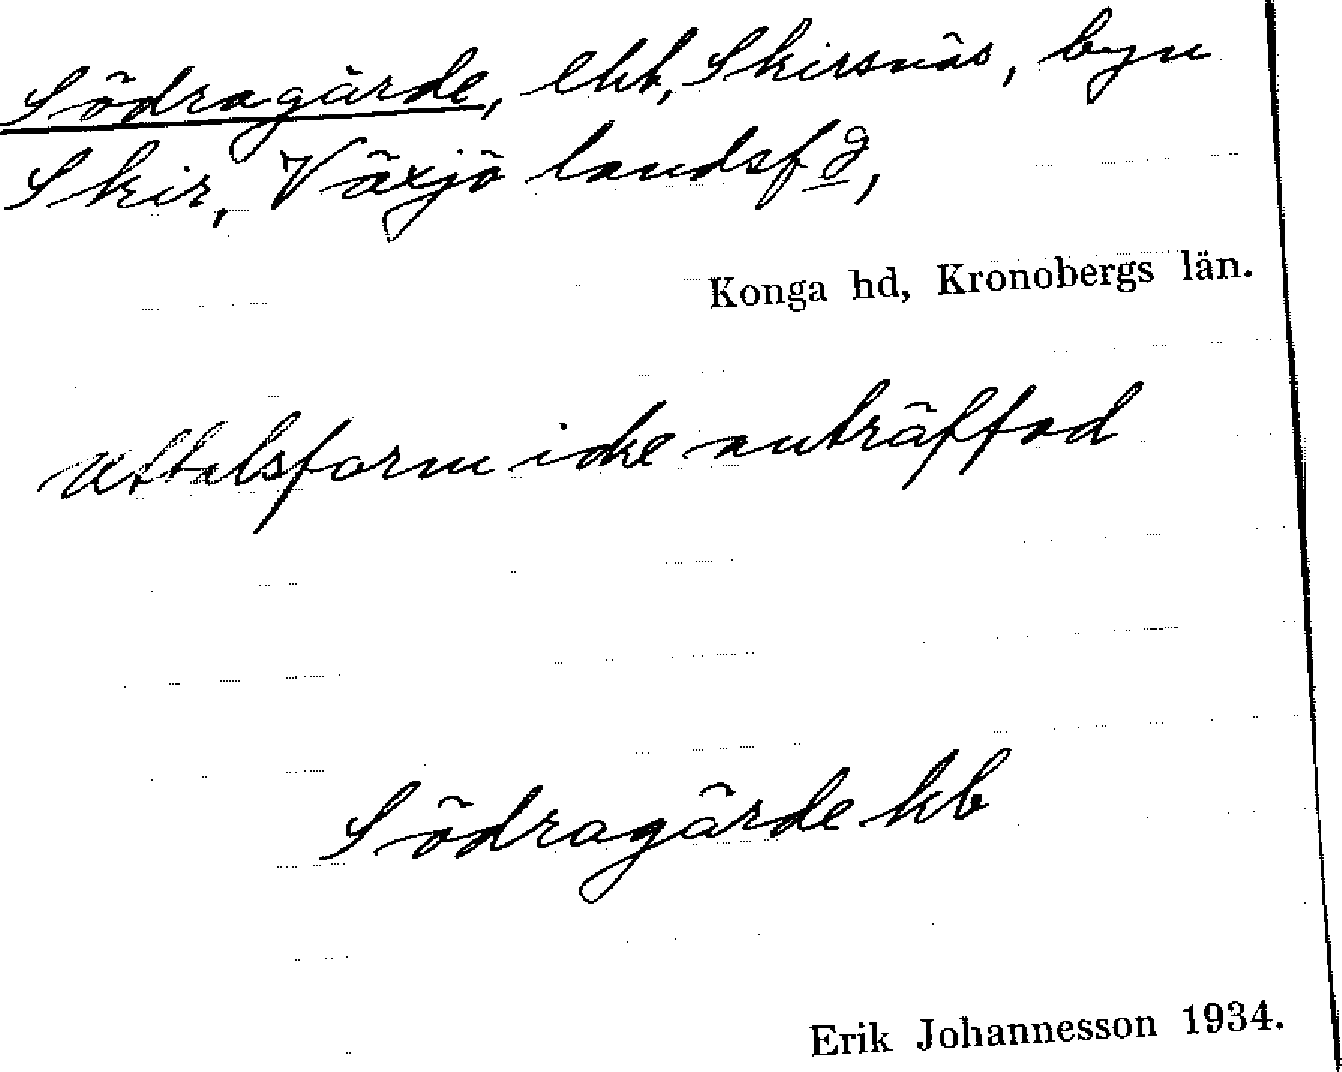 Södragärde, lht, Skirsnäs, byn
Skir, Växjö landsfg,
Konga hd, Kronobergs län.
Uttalsform icke anträffad
Södragärde kb
Erik Johannesson 1934.